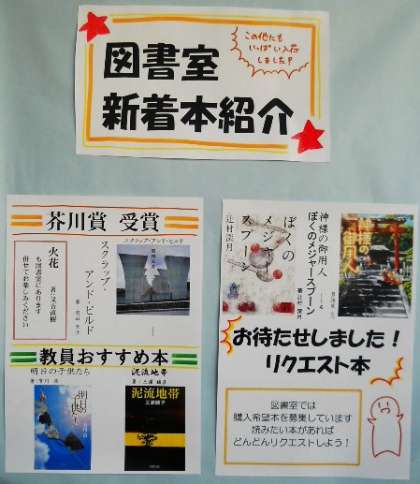 図書室
新着本紹介
この他にも
いっぱい入荷
しました!
芥川賞 受賞
火花
著:又吉直樹
も図書室にあります
併せてお楽しみください
スクラップ・
アンド・ビルド
スクラップ・アンド・ビルド
教員おすすめ本
明日の子供たち
泥流地帯
泥流地帯
三浦綾子
神様の御用人
ぼくのメジャースプーン
ぼくの
メジャー
スプーン
辻村深月
神様の
御用人
お待たせしました!
リクエスト本
図書室では
購入希望本を募集しています
読みたい本があれば
どんどんリクエストしよう!